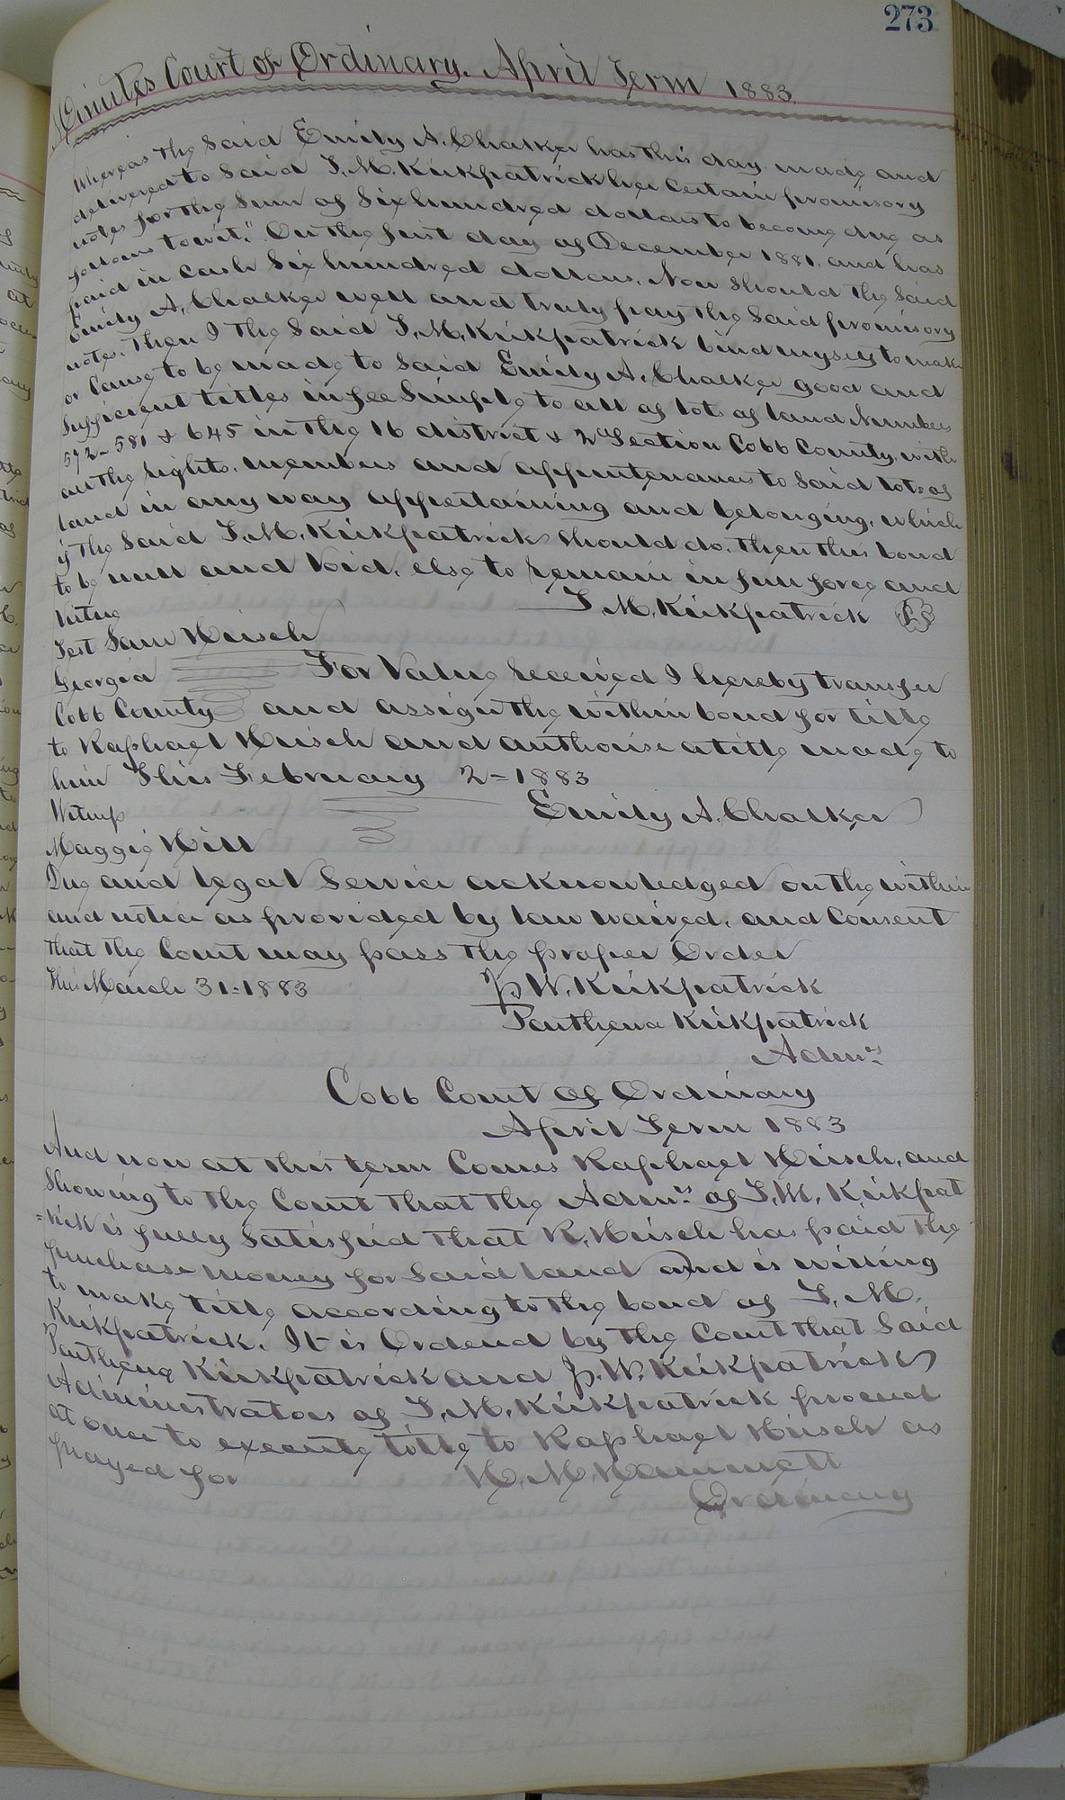 273
Minutes Court of Ordinary. April Term 1883
Whereas the said Emily A. Chalker has this day made and
delivered to said T. M. Kirkpatrick her certain promisory
notes for the Sum of Six hundred dollars to become due as
follows towit." On the first day of December 1881. and has
paid in cash Six hundred dollars. Now should the said
Emily A. Chalker well and truly pay the said promisory
note. Then I the said T. M. Kirkpatrick bind myself to make
or Cause to be made to said Emily A. Chalker good and
Sufficient titles in fee Simple to all of lots of land Numbers
572 - 581 & 645 in the 16 district & 2d Section Cobb County, with
all the rights. members and appurtenances to said lots of
land in any way appertaining and belonging. which
if the said T. M. Kirkpatrick should do. then this bond
to be null and void. else to remain in full force and
virtue
T. M. Kirkpatrick LS
Test Sam Hirsch
Georgia For Value received I hereby transfer
Cobb County and assign the within bond for title
to Raphael Hirsch and authorise a title made to
him This February 2 - 1883
Emily A. Chalker
Witness
Maggie Hill
Due and legal Service acknowledged on the within
and notice as provided by law waived. and Consent
that the Court may pass the proper Order
This March 31 - 1883
J. W. Kirkpatrick
Parthena Kirkpatrick
Admrs
Cobb Court of Ordinary
April Term 1883
And now at this term Comes Raphael Hirsch, and
Showing to the Court that the Admrs of T. M. Kirkpat
=rick is fully Satisfied that R. Hirsch has paid the
purchase money for said land and is willing
to make title according to the bond of T. M.
Kirkpatrick. It is Ordered by the Court that Said
Parthena Kirkpatrick and J. W. Kirkpatrick
Administrators of T. M. Kirkpatrick proceed
at once to execute title to Raphael Hirsch as
prayed for
H. M. Hammett
Ordinary